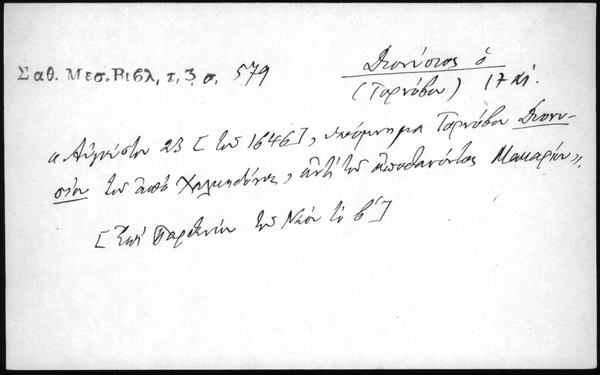 Σαθ. Μεσ. Βιβλ, τ, 3, σ, 579
Διονύσιος ὁ
(Τορνόβου) 17 αἰ.
« Αὐγούστου 23 [τοῦ 1646], ὑπόμνημα Τορνόβου Διονυ-
σίου τοῦ ἀπὸ Χαλκηδόνος, ἀντὶ τοῦ ἀποθανόντος Μακαρίου».
[Ἐπὶ Παρθενίου τοῦ Νέου τὸ β′]